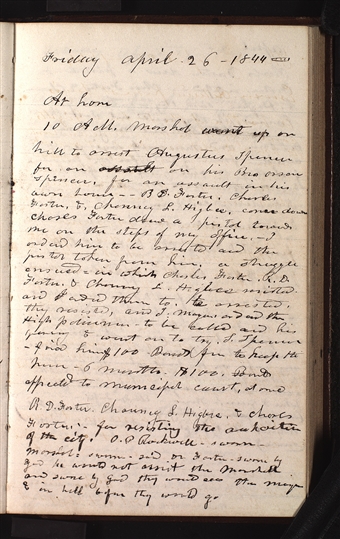 Friday April 26 - 1844
At home
10 A.M. Marshal went up on
hill to arrest Augustus Spencer
for an assault on his Bro orson
Spencer, for an assault in his
own home - R D. Foster. Charles
Foster, & Chauncy L. Higbee, come down
Charles Foster drew a pistol towards
me on the steps of my office. - I
ordered him to be arrested and the
pistol taken from him, a struggle
ensued - in which Charles Foster, R. D.
Foster & Chauncy L. Higbee resisted
and I ordered them to be arrested
they resisted, and I Mayor ordered the
High policeman to be called and his
& went on to try. A. Spencer
- fined him $100 Bond for to keep the
peace - 6 months. $100. Bond
appealed to municipal court, and
R. D. Foster. Chauncy L. Higbee, & Charles
Foster. - for resisting the authorities
of the city. O. P. Rockwell - sworn
Marshal - sworn - said Dr Foster swore by
God he would not assist the Marshall
and swore by god they would see the mayor
in hell before they would go